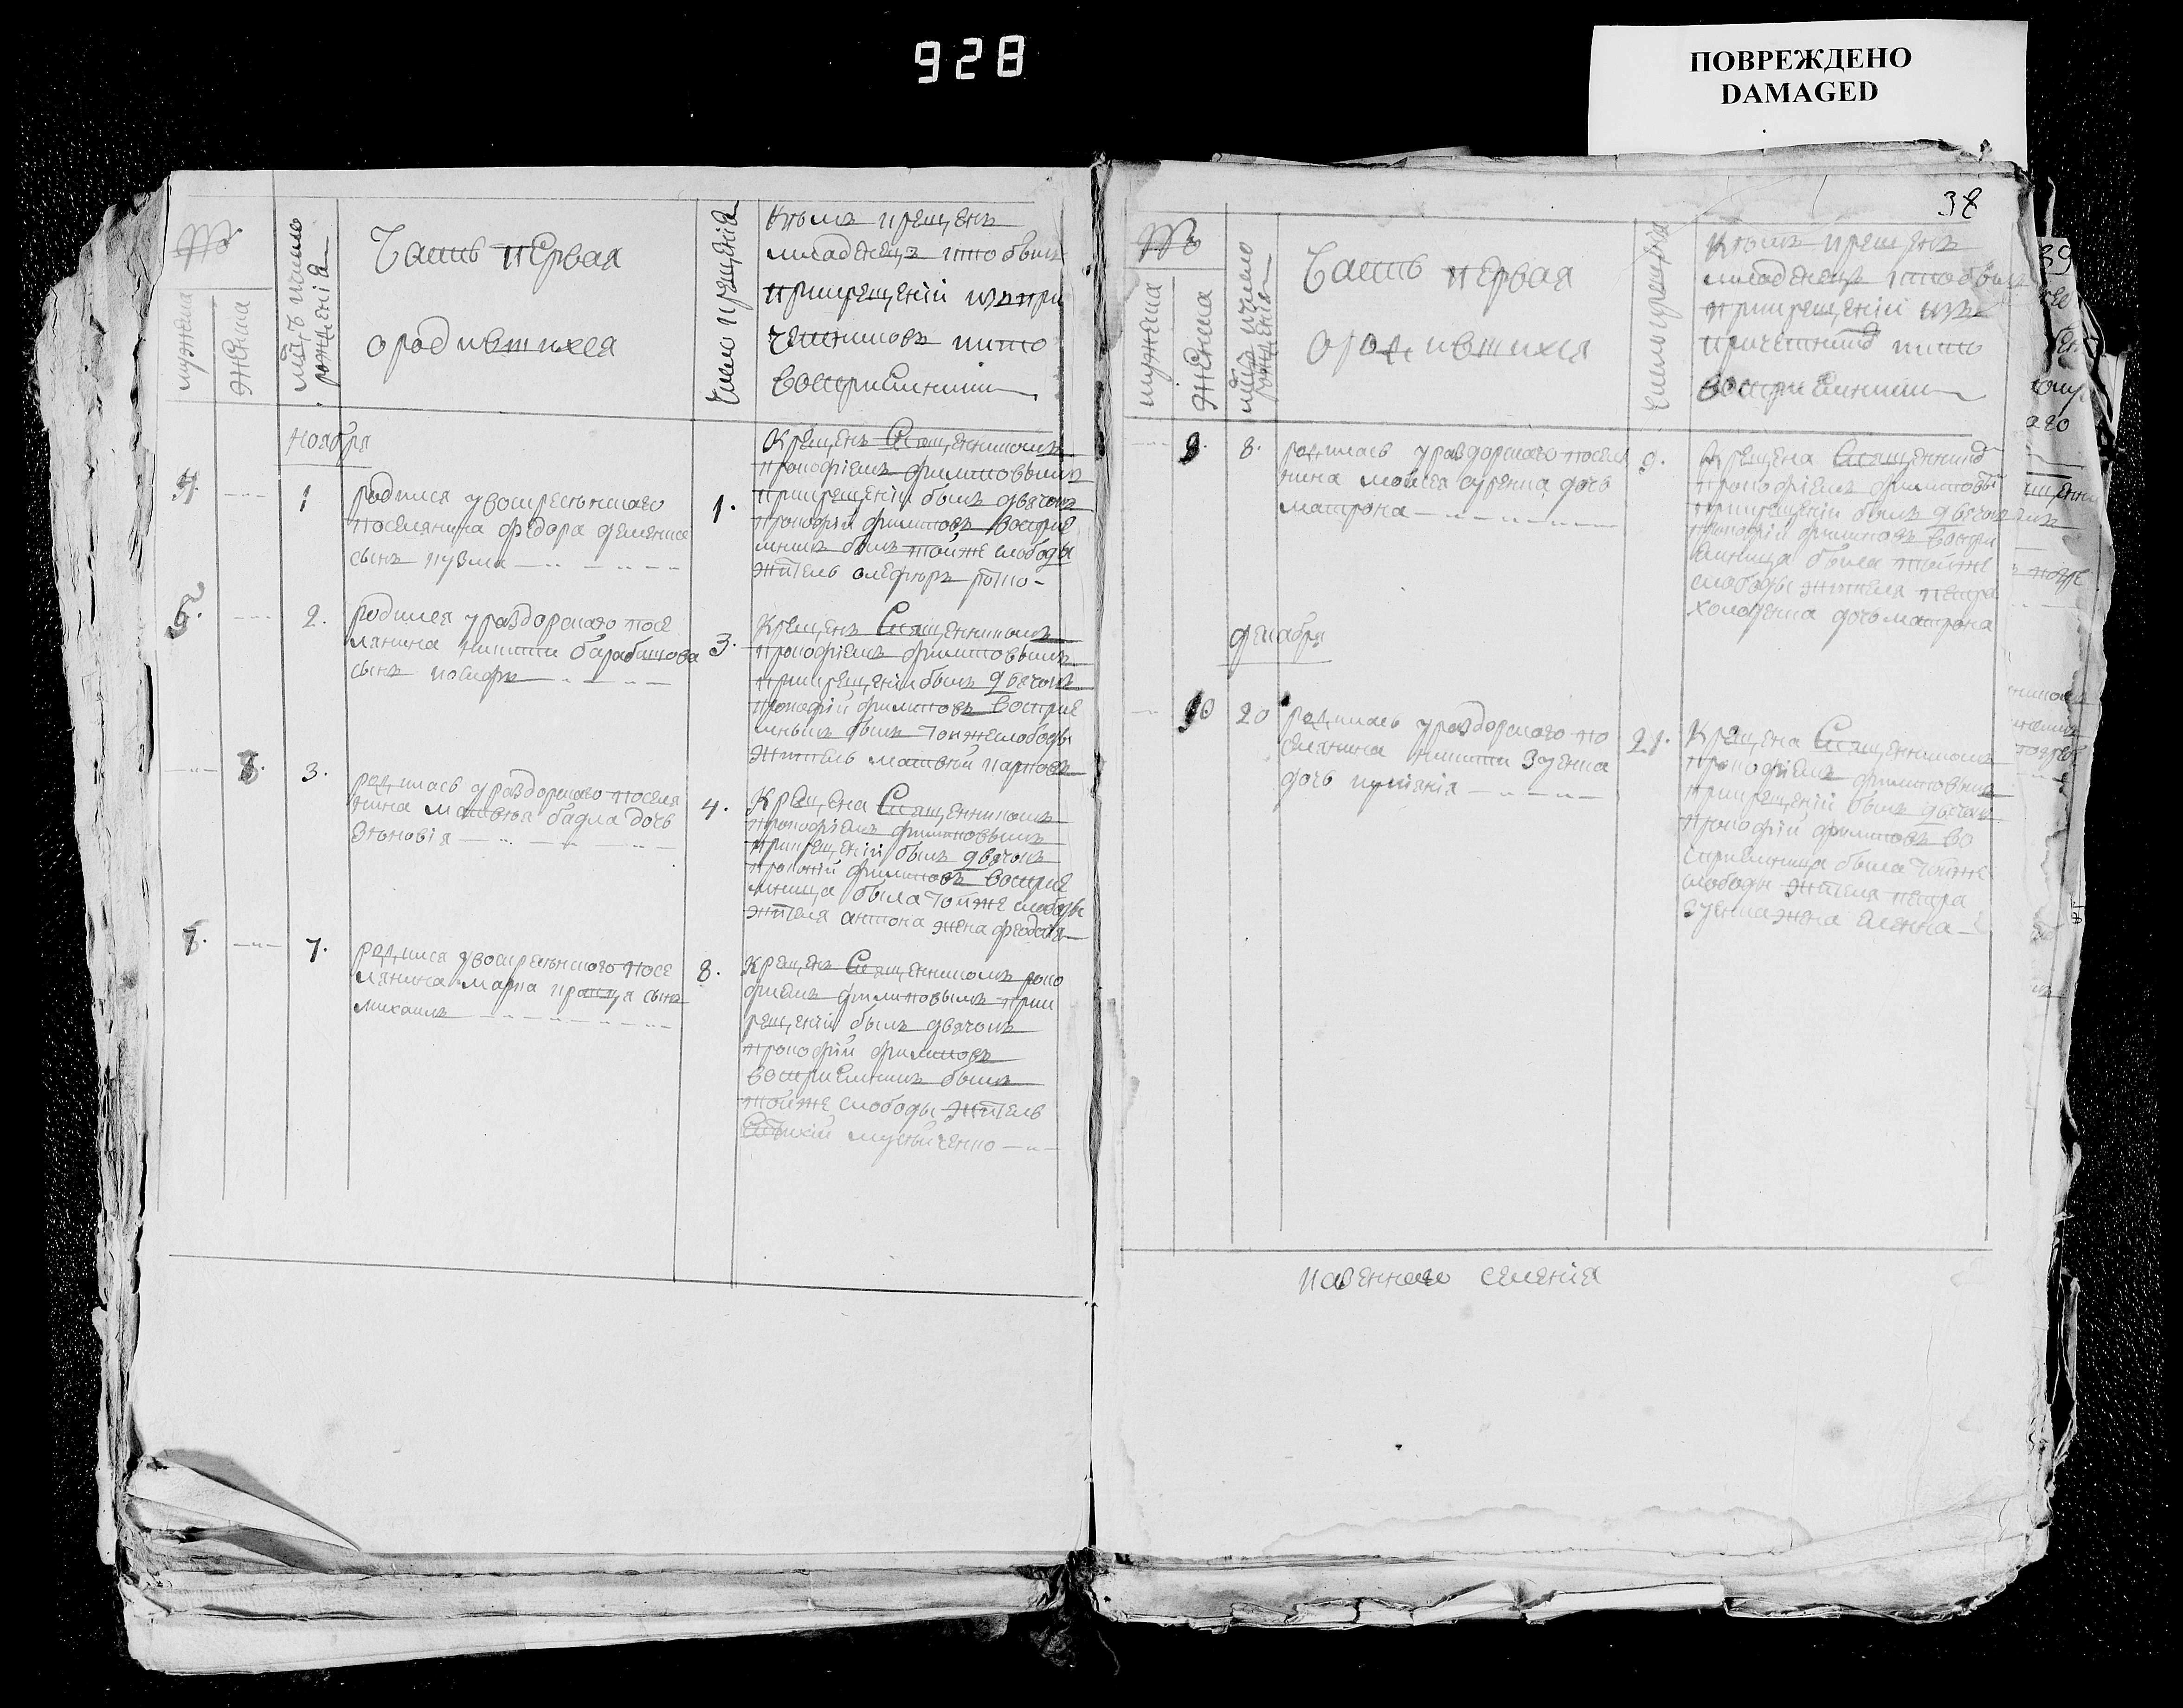 928
ПОВРЕЖДЕНО
DAMAGED
№
мужеска
женска
мсцъ и число
рожденія
Часть первая
о родившихся
число крещенія
Кѣмъ крещенъ
младенецъ кто былъ
при крещеніи изъ при
четниковъ и кто
восприемники
ноября
4.
1
родился у воскресенского
поселянина федора
сынъ кузма
1.
Крещенъ Священникомъ
прокофіемъ филиповымъ
при крещеніи былъ дьячокъ
прокофій филиповъ восприе
мникъ былъ той же слободы
житель
5.
2.
родился у раздорского посе
лянина никити барабашова
сынъ иосифъ
3.
Крещенъ Священникомъ
прокофіемъ филиповымъ
при крещеніи былъ дьячокъ
прокофій филиповъ восприе
мникъ былъ той же слободы
житель матвей карповъ
3.
родилась у раздорского поселя
нина матвея бабла дочь
зѣновія
4.
Крещена Священникомъ
прокофіемъ филиповымъ
при крещеніи былъ дьячокъ
прокофій филиповъ восприе
мница была той же слободы
жителя антона жена феодосія
7.
родился у воскресенского посе
лянина марка сынъ
михаилъ
8.
Крещенъ Священникомъ проко
фиемъ филиповымъ при к
рещеніи былъ дьячокъ
прокофій филиповъ
восприемникъ былъ
той же слободы житель
38
№
мужеска
женска
мсцъ и число
рожденія
Часть первая
о родившихся
число крещенія
Кѣмъ крещенъ
младенецъ кто былъ
при крещеніи изъ
причетниковъ и кто
восприемники
9.
8.
родилась у раздорского поселя
нина моисея дочь
матрона
9.
Крещена Священником
прокофіемъ филиповы
при крещеніи былъ дьячокъ
прокофій филиповъ воспри
емница была той же
слободы жителя петра
холоденка дочь матрона
декабря
10
20
родилась у раздорского по
селянина никити зуенка
дочь
21.
Крещена Священникомъ
прокофіемъ филиповым
при крещеніи былъ дьячокъ
прокофій филиповъ во
сприемница была той же
слободы жителя петра
зуенка жена еленка
казенного селенія
39